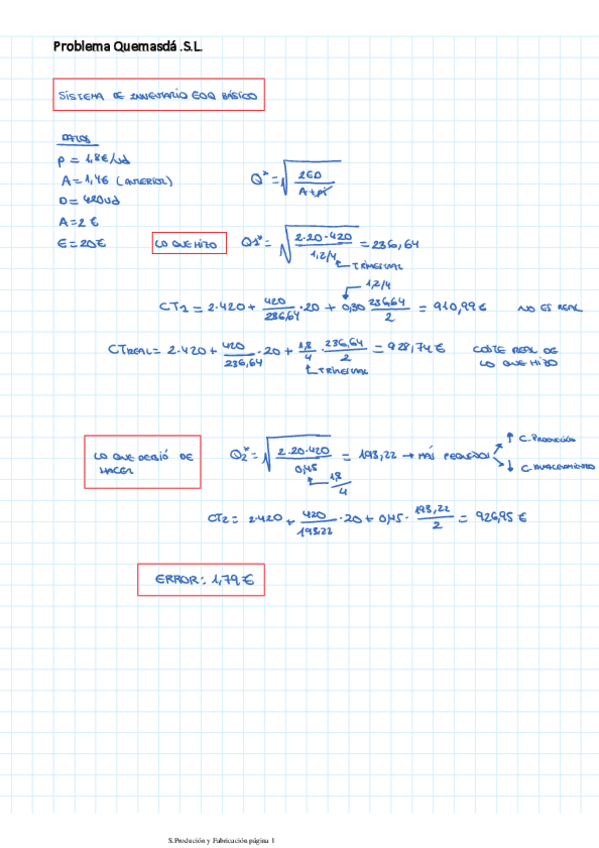 Problema Quemasdá .S.L.
SISTEMA DE INVENTARIO EOQ BÁSICO
DATOS
P = 1,8€/ud
A = 1,4€ (ANTERIOR)
D = 420ud
A = 2 €
E = 20€
Q* = √(2ED / A+pi)
LO QUE HIZO
Q1* = √(2·20·420 / 1,2/4) = 236,64
TRIMESTRAL
1,2/4
CT1 = 2·420 + 420/236,64 · 20 + 0,30 236,64/2 = 910,99€ NO ES REAL
CTREAL = 2·420 + 420/236,64 · 20 + 1,8/4 · 236,64/2 = 928,74€ COSTE REAL DE LO QUE HIZO
TRIMESTRAL
LO QUE DEBIÓ DE HACER
Q2* = √(2·20·420 / 0,45) = 193,22 → MÁS PEQUEÑO
↑ C. PRODUCCIÓN
↓ C. ALMACENAMIENTO
1,8/4
CT2 = 2·420 + 420/193,22 · 20 + 0,45 · 193,22/2 = 926,95 €
ERROR: 1,79 €
S.Produción y Fabricación página 1